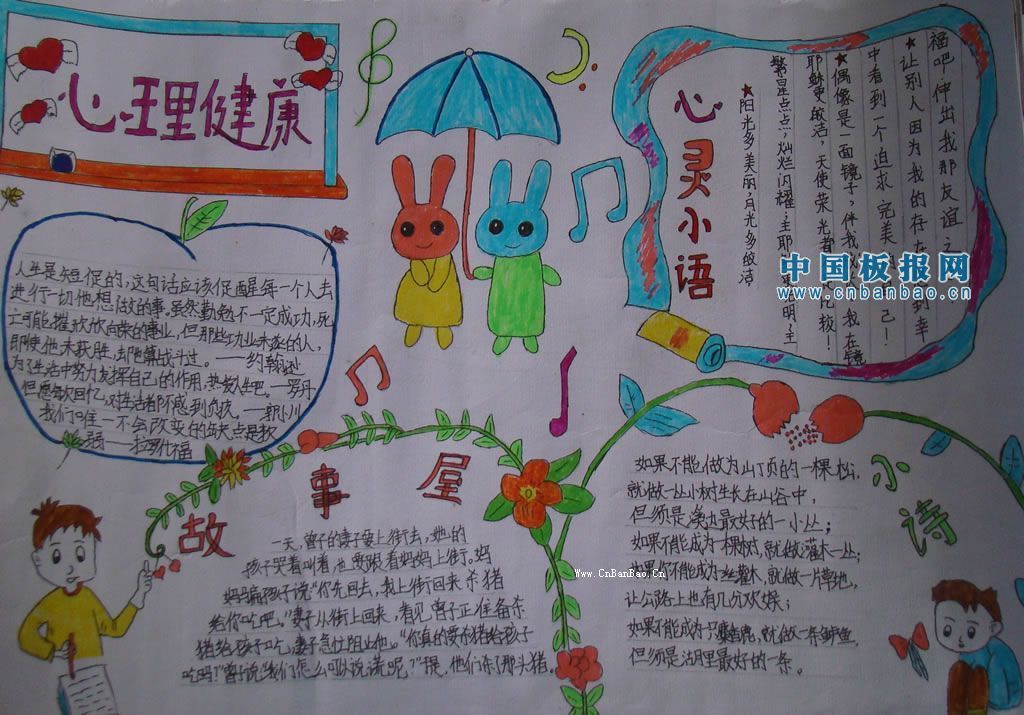 心理健康
人生是短促的，这句话应该促醒每一个人去
进行一切他想做的事。虽然勤勉不一定成功，死
亡可能摧折欣欣向荣的事业，但那些功业未遂的人，
即使他未获胜，去也算战斗过。——约翰逊
为了生活中努力发挥自己的作用，热爱人生吧。——罗丹
但愿每次回忆，对生活都不感到负疚。——郭小川
我们唯一不会改变的缺点是软
弱——拉罗什福
心灵小语
福吧，伸出我那友谊之
★让别人因为我的存在
到幸
中看到一个追求完美的
己！
★偶像是一面镜子，伴我
我在镜
耶稣更敏洁，天使荣光
比较！
繁星点点，灿烂闪耀；主耶
更明；主
★阳光多美丽，月光多皎洁
中国板报网
www.cnbanbao.cn
故事屋
一天，曾子的妻子要上街去，她的
孩子哭着叫着也要跟着妈妈上街。妈
妈骗孩子说“你先回去，我上街回来杀猪
给你吃吧。”妻子从街上回来，看见曾子正准备杀
猪给孩子吃，妻子急忙阻止他。“你真的要杀猪给孩子
吃吗？”曾子说“我们怎么可以说谎呢？”于是，他们杀了那头猪。
www.CnBanBao.Cn
小诗
如果不能做为山顶的一棵松，
就做一丛小树生长在山谷中，
但须是溪边最好的一小丛；
如果不能成为一棵树，就做灌木一丛；
如果不能成为一丛灌木，就做一片草地，
让公路上也有几分欢娱；
如果不能成为一只麝香鹿，就做一条鲈鱼，
但须是湖里最好的一条。